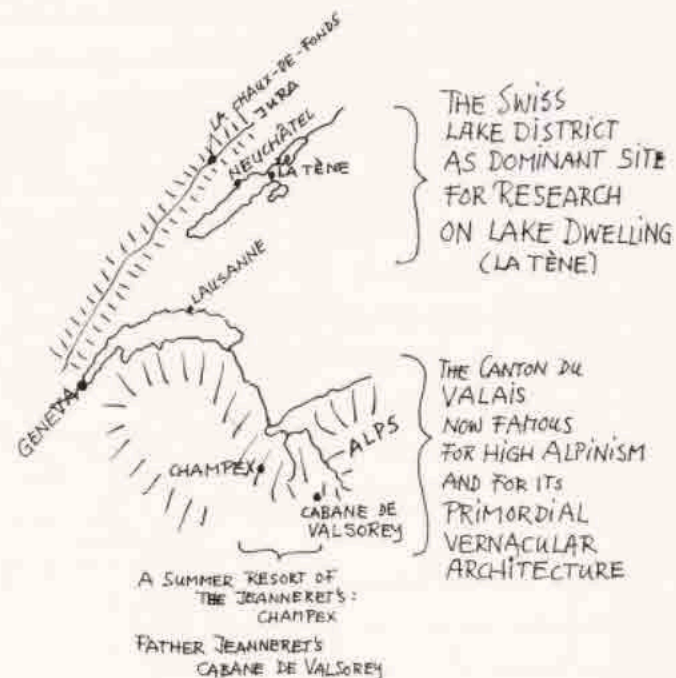 LA CHAUX-DE-FONDS
JURA
NEUCHÂTEL
LA TÈNE
THE SWISS
LAKE DISTRICT
AS DOMINANT SITE
FOR RESEARCH
ON LAKE DWELLING
(LA TÈNE)
LAUSANNE
GENEVA
ALPS
CHAMPEX
CABANE DE
VALSOREY
THE CANTON DU
VALAIS
NOW FAMOUS
FOR HIGH ALPINISM
AND FOR ITS
PRIMORDIAL
VERNACULAR
ARCHITECTURE
A SUMMER RESORT OF
THE JEANNERET'S:
CHAMPEX
FATHER JEANNERET'S
CABANE DE VALSOREY